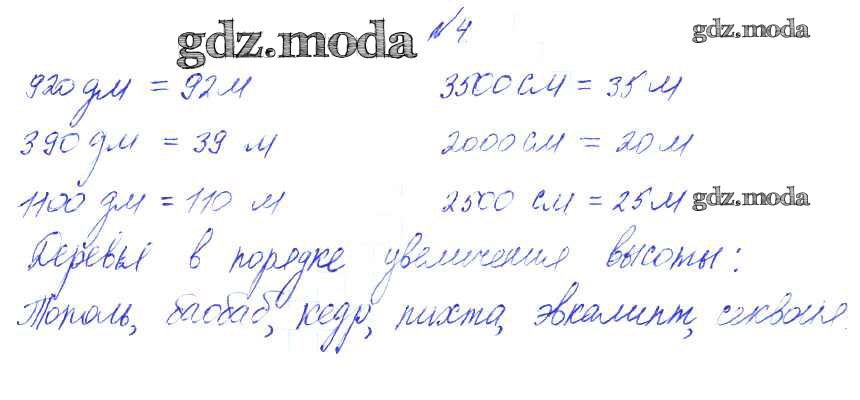 gdz.moda №4 gdz.moda
920 дм = 92 м 3500 см = 35 м
390 дм = 39 м 2000 см = 20 м
1100 дм = 110 м 2500 см = 25 м gdz.moda
Деревья в порядке увеличения высоты:
Тополь, баобаб, кедр, пихта, эвкалипт, секвойя